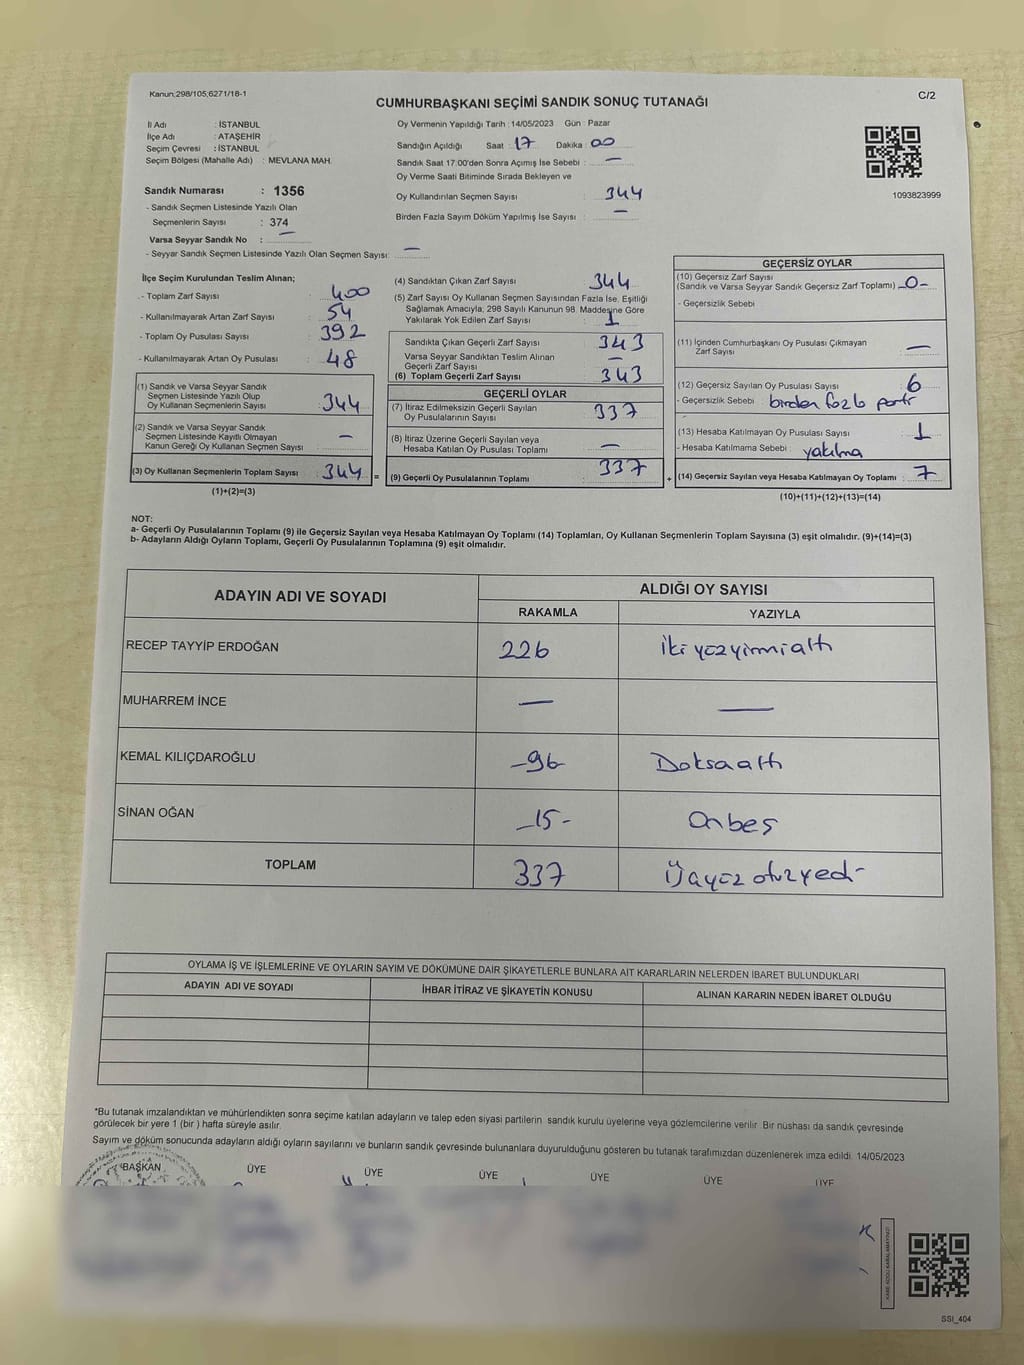 Kanun;298/105;6271/18-1
CUMHURBAŞKANI SEÇİMİ SANDIK SONUÇ TUTANAĞI
C/2
İl Adı : İSTANBUL
İlçe Adı : ATAŞEHİR
Seçim Çevresi : İSTANBUL
Seçim Bölgesi (Mahalle Adı) : MEVLANA MAH.
Sandık Numarası : 1356
- Sandık Seçmen Listesinde Yazılı Olan
Seçmenlerin Sayısı : 374
Varsa Seyyar Sandık No : —
- Seyyar Sandık Seçmen Listesinde Yazılı Olan Seçmen Sayısı: —
Oy Vermenin Yapıldığı Tarih : 14/05/2023 Gün : Pazar
Sandığın Açıldığı Saat : 17 Dakika : 00
Sandık Saat 17:00'den Sonra Açımış İse Sebebi : —
Oy Verme Saati Bitiminde Sırada Bekleyen ve
Oy Kullandırılan Seçmen Sayısı : 344
Birden Fazla Sayım Döküm Yapılmış İse Sayısı : —
1093823999
İlçe Seçim Kurulundan Teslim Alınan;
- Toplam Zarf Sayısı : 400
- Kullanılmayarak Artan Zarf Sayısı : 54
- Toplam Oy Pusulası Sayısı : 392
- Kullanılmayarak Artan Oy Pusulası : 48
(1) Sandık ve Varsa Seyyar Sandık
Seçmen Listesinde Yazılı Olup
Oy Kullanan Seçmenlerin Sayısı : 344
(2) Sandık ve Varsa Seyyar Sandık
Seçmen Listesinde Kayıtlı Olmayan
Kanun Gereği Oy Kullanan Seçmen Sayısı : —
(3) Oy Kullanan Seçmenlerin Toplam Sayısı : 344 =
(1)+(2)=(3)
(4) Sandıktan Çıkan Zarf Sayısı : 344
(5) Zarf Sayısı Oy Kullanan Seçmen Sayısından Fazla İse, Eşitliği
Sağlamak Amacıyla; 298 Sayılı Kanunun 98. Maddesine Göre
Yakılarak Yok Edilen Zarf Sayısı : 1
Sandıkta Çıkan Geçerli Zarf Sayısı : 343
Varsa Seyyar Sandıktan Teslim Alınan
Geçerli Zarf Sayısı : —
(6) Toplam Geçerli Zarf Sayısı : 343
GEÇERLİ OYLAR
(7) İtiraz Edilmeksizin Geçerli Sayılan
Oy Pusulalarının Sayısı : 337
(8) İtiraz Üzerine Geçerli Sayılan veya
Hesaba Katılan Oy Pusulası Toplamı : —
(9) Geçerli Oy Pusulalarının Toplamı : 337 +
GEÇERSİZ OYLAR
(10) Geçersiz Zarf Sayısı
(Sandık ve Varsa Seyyar Sandık Geçersiz Zarf Toplamı) : -0-
- Geçersizlik Sebebi :
(11) İçinden Cumhurbaşkanı Oy Pusulası Çıkmayan
Zarf Sayısı : —
(12) Geçersiz Sayılan Oy Pusulası Sayısı : 6
- Geçersizlik Sebebi : birden fazla parti
(13) Hesaba Katılmayan Oy Pusulası Sayısı : 1
- Hesaba Katılmama Sebebi : yakılma
(14) Geçersiz Sayılan veya Hesaba Katılmayan Oy Toplamı : 7
(10)+(11)+(12)+(13)=(14)
NOT:
a- Geçerli Oy Pusulalarının Toplamı (9) ile Geçersiz Sayılan veya Hesaba Katılmayan Oy Toplamı (14) Toplamları, Oy Kullanan Seçmenlerin Toplam Sayısına (3) eşit olmalıdır. (9)+(14)=(3)
b- Adayların Aldığı Oyların Toplamı, Geçerli Oy Pusulalarının Toplamına (9) eşit olmalıdır.
ADAYIN ADI VE SOYADI ALDIĞI OY SAYISI
RAKAMLA YAZIYLA
RECEP TAYYİP ERDOĞAN 226 İkiyüzyirmialtı
MUHARREM İNCE — —
KEMAL KILIÇDAROĞLU -96 Doksaaltı
SİNAN OĞAN -15- Onbeş
TOPLAM 337 Üçyüzotuzyedi
OYLAMA İŞ VE İŞLEMLERİNE VE OYLARIN SAYIM VE DÖKÜMÜNE DAİR ŞİKAYETLERLE BUNLARA AİT KARARLARIN NELERDEN İBARET BULUNDUKLARI
ADAYIN ADI VE SOYADI İHBAR İTİRAZ VE ŞİKAYETİN KONUSU ALINAN KARARIN NEDEN İBARET OLDUĞU
*Bu tutanak imzalandıktan ve mühürlendikten sonra seçime katılan adayların ve talep eden siyasi partilerin sandık kurulu üyelerine veya gözlemcilerine verilir. Bir nüshası da sandık çevresinde
görülecek bir yere 1 (bir ) hafta süreyle asılır.
Sayım ve döküm sonucunda adayların aldığı oyların sayılarını ve bunların sandık çevresinde bulunanlara duyurulduğunu gösteren bu tutanak tarafımızdan düzenlenerek imza edildi. 14/05/2023
BAŞKAN ÜYE ÜYE ÜYE ÜYE ÜYE ÜYE
SSI_404